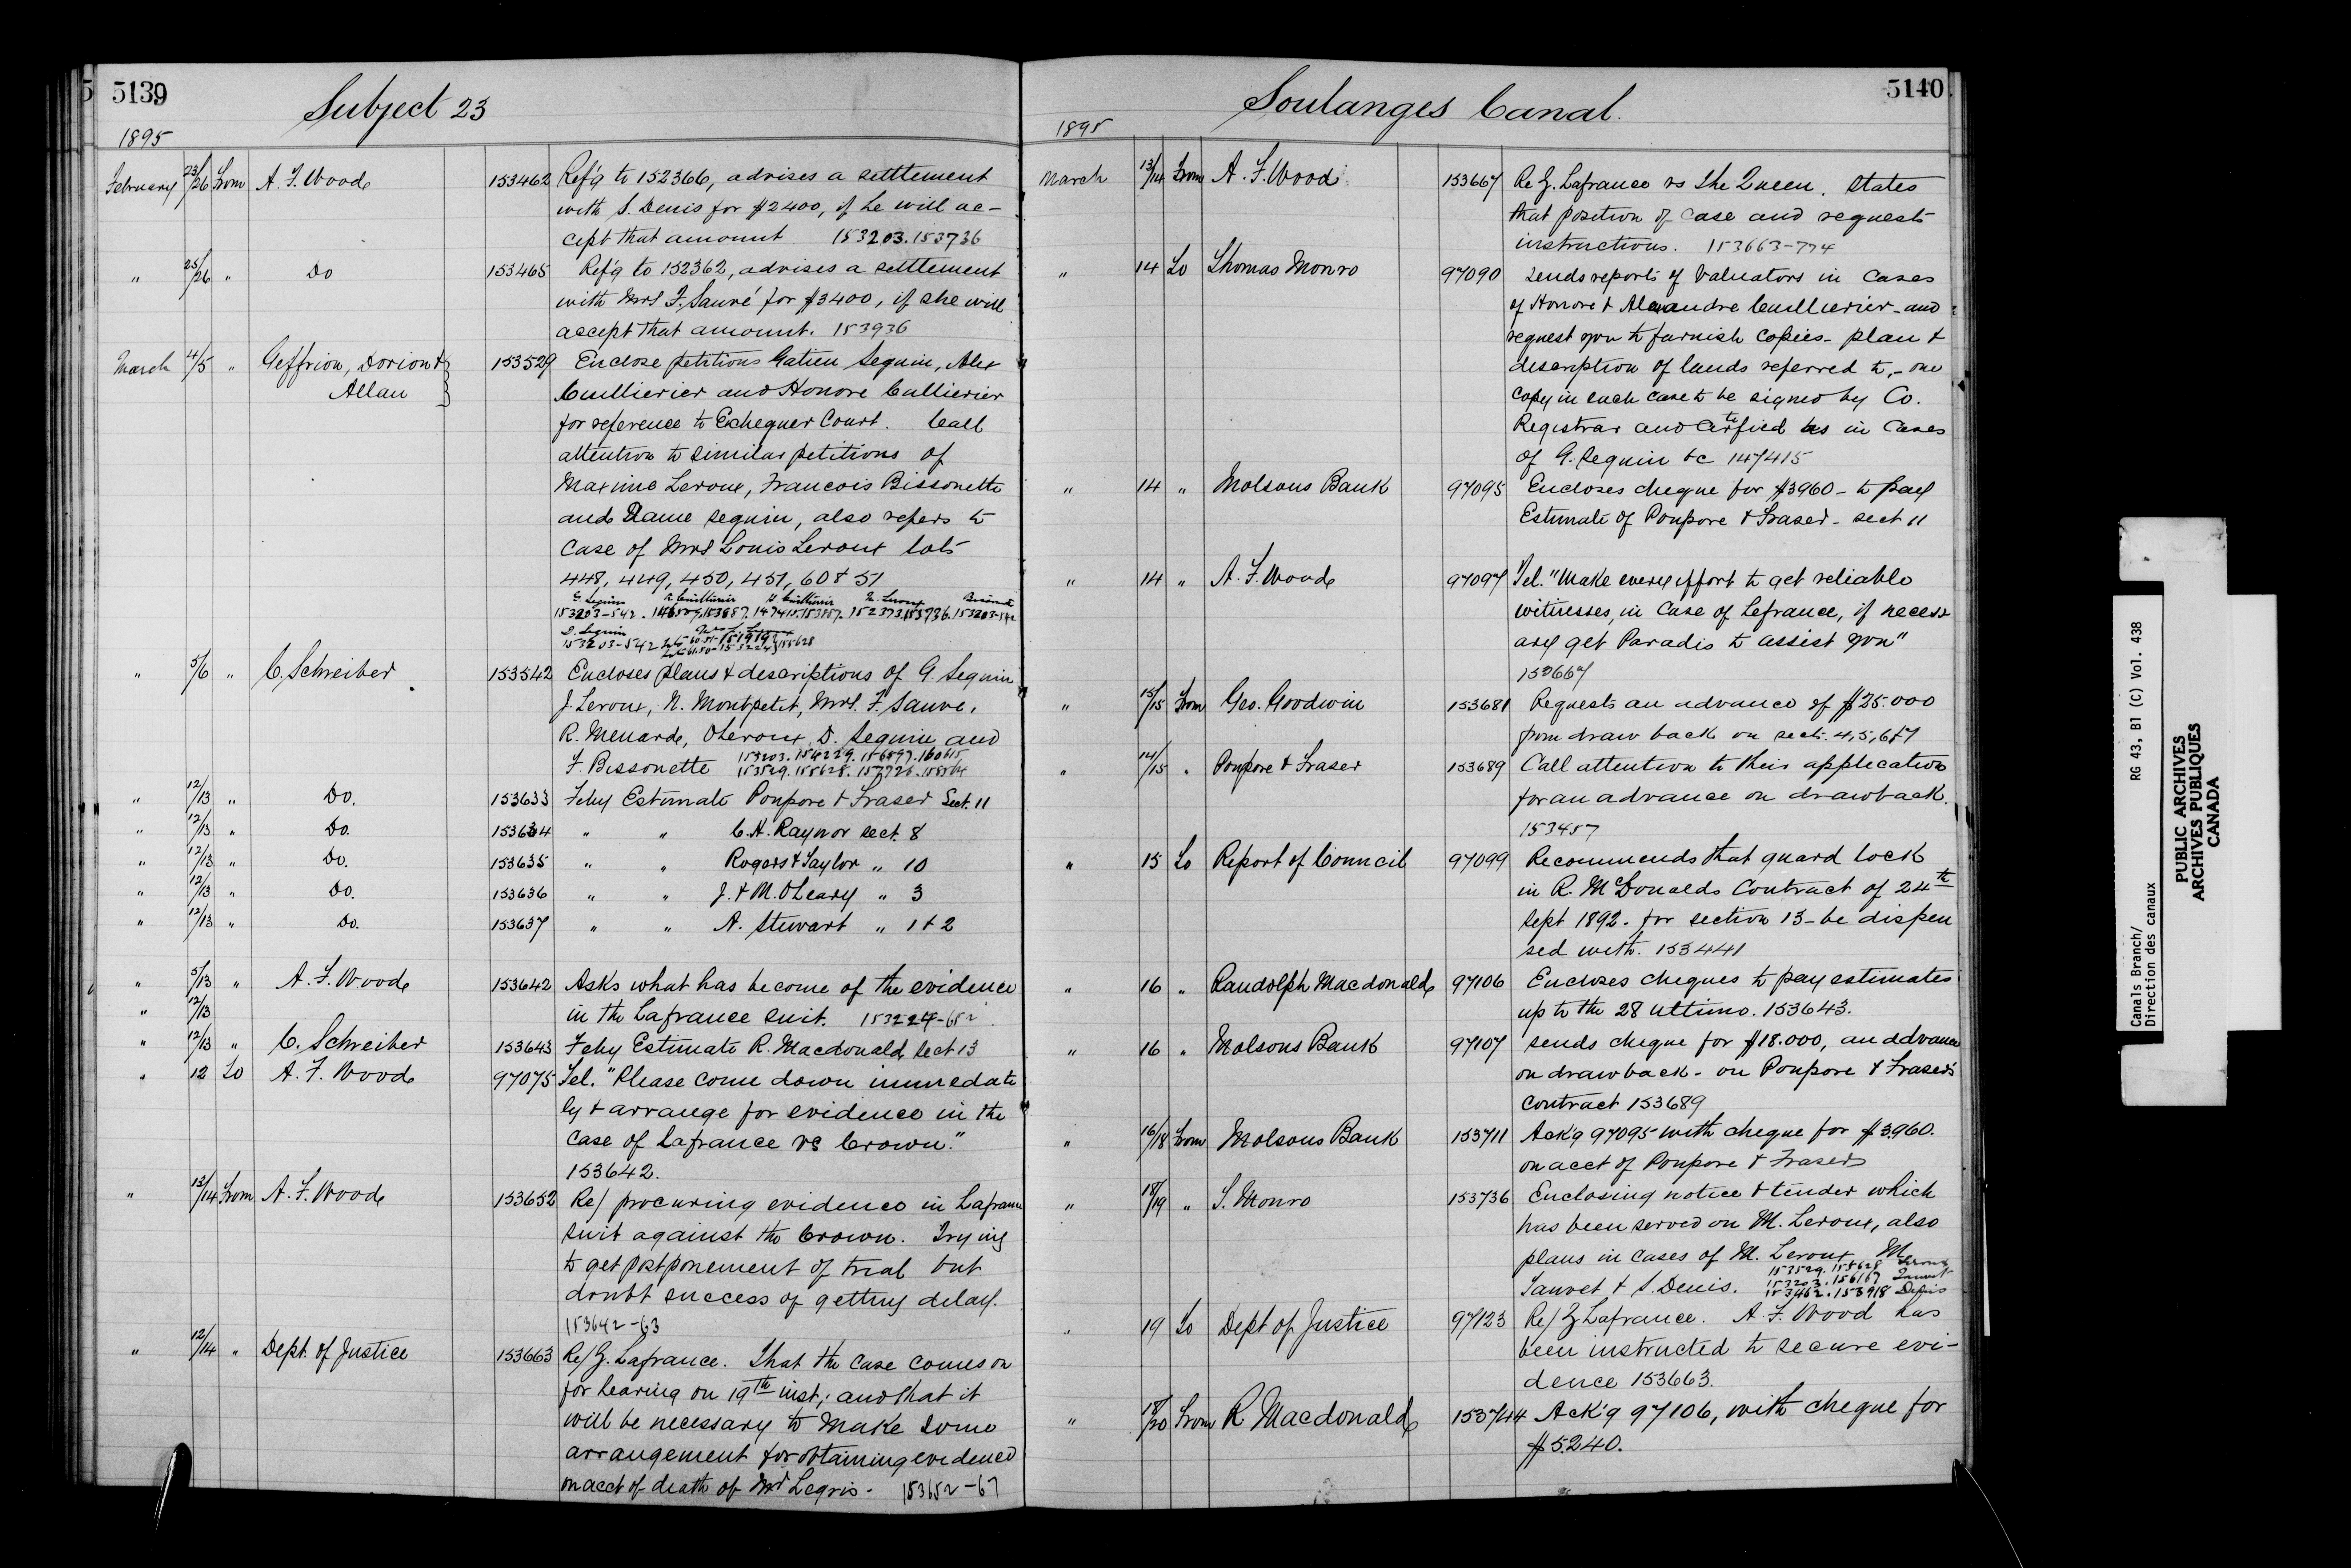 5139
Subject 23
1895
February 23/26 From A. F. Wood 153462 Ref'g to 152366, advises a settlement
with S. Denis for $2400, if he will ac-
cept that amount 153203.153736
" 25/26 " Do 153465 Ref'g to 152362, advises a settlement
with Mrs F. Sauvé for $3400, if she will
accept that amount. 153936
March 4/5 " Geffrion, Dorion & 153529 Enclose petitions Gatien Sequin, Alex
Allan } Cuillierier and Honore Cullierier
for reference to Exchequer Court. Call
attention to similar petitions of
Maxime Leroux, Francois Bissonette
and Dame Sequin, also refers to
Case of Mrs Louis Leroux lots
448, 449, 450, 451, 60 & 51
G. Sequin A. Cuillierier H. Cuillierier M. Leroux
153203-542. 147415.153687. 152373.153736. 153203-542
D. Sequin
153203-542
" 5/6 " C. Schreiber 153542 Encloses plans & descriptions of G. Sequin
J. Leroux, N. Montpetit, Mrs. F. Sauve,
R. Menard, O Leroux, D. Sequin and
F. Bissonette 153203. 154229. 156597. 160615
153529. 155628. 157726. 158564
" 12/13 " Do. 153633 Feby Estimate Poupore & Fraser Sect. 11
" 12/13 " Do. 153634 " " C. A. Raynor sect. 8
" 12/13 " Do. 153635 " " Rogers & Taylor " 10
" 12/13 " Do. 153636 " " J. & M. O'Leary " 3
" 12/13 " Do. 153637 " " A. Stewart " 1 & 2
" 5/13 " A. F. Wood 153642 Asks what has become of the evidence
" 12/13 in the Lafrance suit. 153224-652
" 12/13 " C. Schreiber 153643 Feby Estimate R. Macdonald Sect 13
" 12 To A. F. Wood 97075 Tel. "Please come down immediate
ly & arrange for evidence in the
case of Lafrance vs Crown."
153642.
" 13/14 From A. F. Wood 153652 Re/ procuring evidence in Lafrance
suit against the Crown. Trying
to get postponement of trial but
doubt success of getting delay.
153642-63
" 12/14 " Dept. of Justice 153663 Re/ Z. Lafrance. That the case comes on
for hearing on 19th inst; and that it
will be necessary to make some
arrangement for obtaining evidence
on acct of death of Mr Legris. 153652-67
5140
Soulanges Canal.
1895
March 13/14 From A. F. Wood 153667 Re Z. Lafrance vs The Queen. States
that position of case and requests
instructions. 153663-774
" 14 To Thomas Monro 97090 Sends reports of Valuators in Cases
of Honore & Alexandre Cuillierier - and
request you to furnish copies - plan &
description of lands referred to, - one
copy in each case to be signed by Co.
Registrar and Certified as in Cases
of G. Sequin &c 147415
" 14 " Molsons Bank 97095 Encloses cheque for $3960 - to pay
Estimate of Poupore & Fraser - sect 11
" 14 " A. F. Wood 97097 Tel. "Make every effort to get reliable
witnesses, in case of Lefrance, if necess
ary get Paradis to assist you"
153667
" 15/15 From Geo. Goodwin 153681 Requests an advance of $25.000
from draw back on sects. 4, 5, 6 & 7
" 14/15 " Poupore & Fraser 153689 Call attention to their application
for an advance on drawback.
153457
" 15 To Report of Council 97099 Recommends that guard lock
in R. McDonalds Contract of 24th
Sept 1892. for section 13 - be dispen
sed with. 153441
" 16 " Randolph Macdonald 97106 Encloses cheques to pay estimates
up to the 28 ultimo. 153643.
" 16 " Molsons Bank 97107 Sends cheque for $18.000, an advance
on drawback - on Poupore & Fraser's
contract 153689
" 16/18 From Molsons Bank 153711 Ack'g 97095 with cheque for $3960.
on acct of Poupore & Fraser
" 18/19 " T. Monro 153736 Enclosing notice & tender which
has been served on M. Leroux, also
plans in cases of M. Leroux M
153529. 155628 Leroux
Sauvet & S. Denis. 153203. 156167 Sauvet
153462. 153918 Denis
" 19 To Dept of Justice 97123 Re/ Z Lafrance. A. F. Wood has
been instructed to secure evi-
dence 153663.
" 18/20 From R Macdonald 153744 Ack'g 97106, with cheque for
$5240.
Canals Branch/
Direction des canaux
RG 43, B1 (C) Vol. 438
PUBLIC ARCHIVES
ARCHIVES PUBLIQUES
CANADA